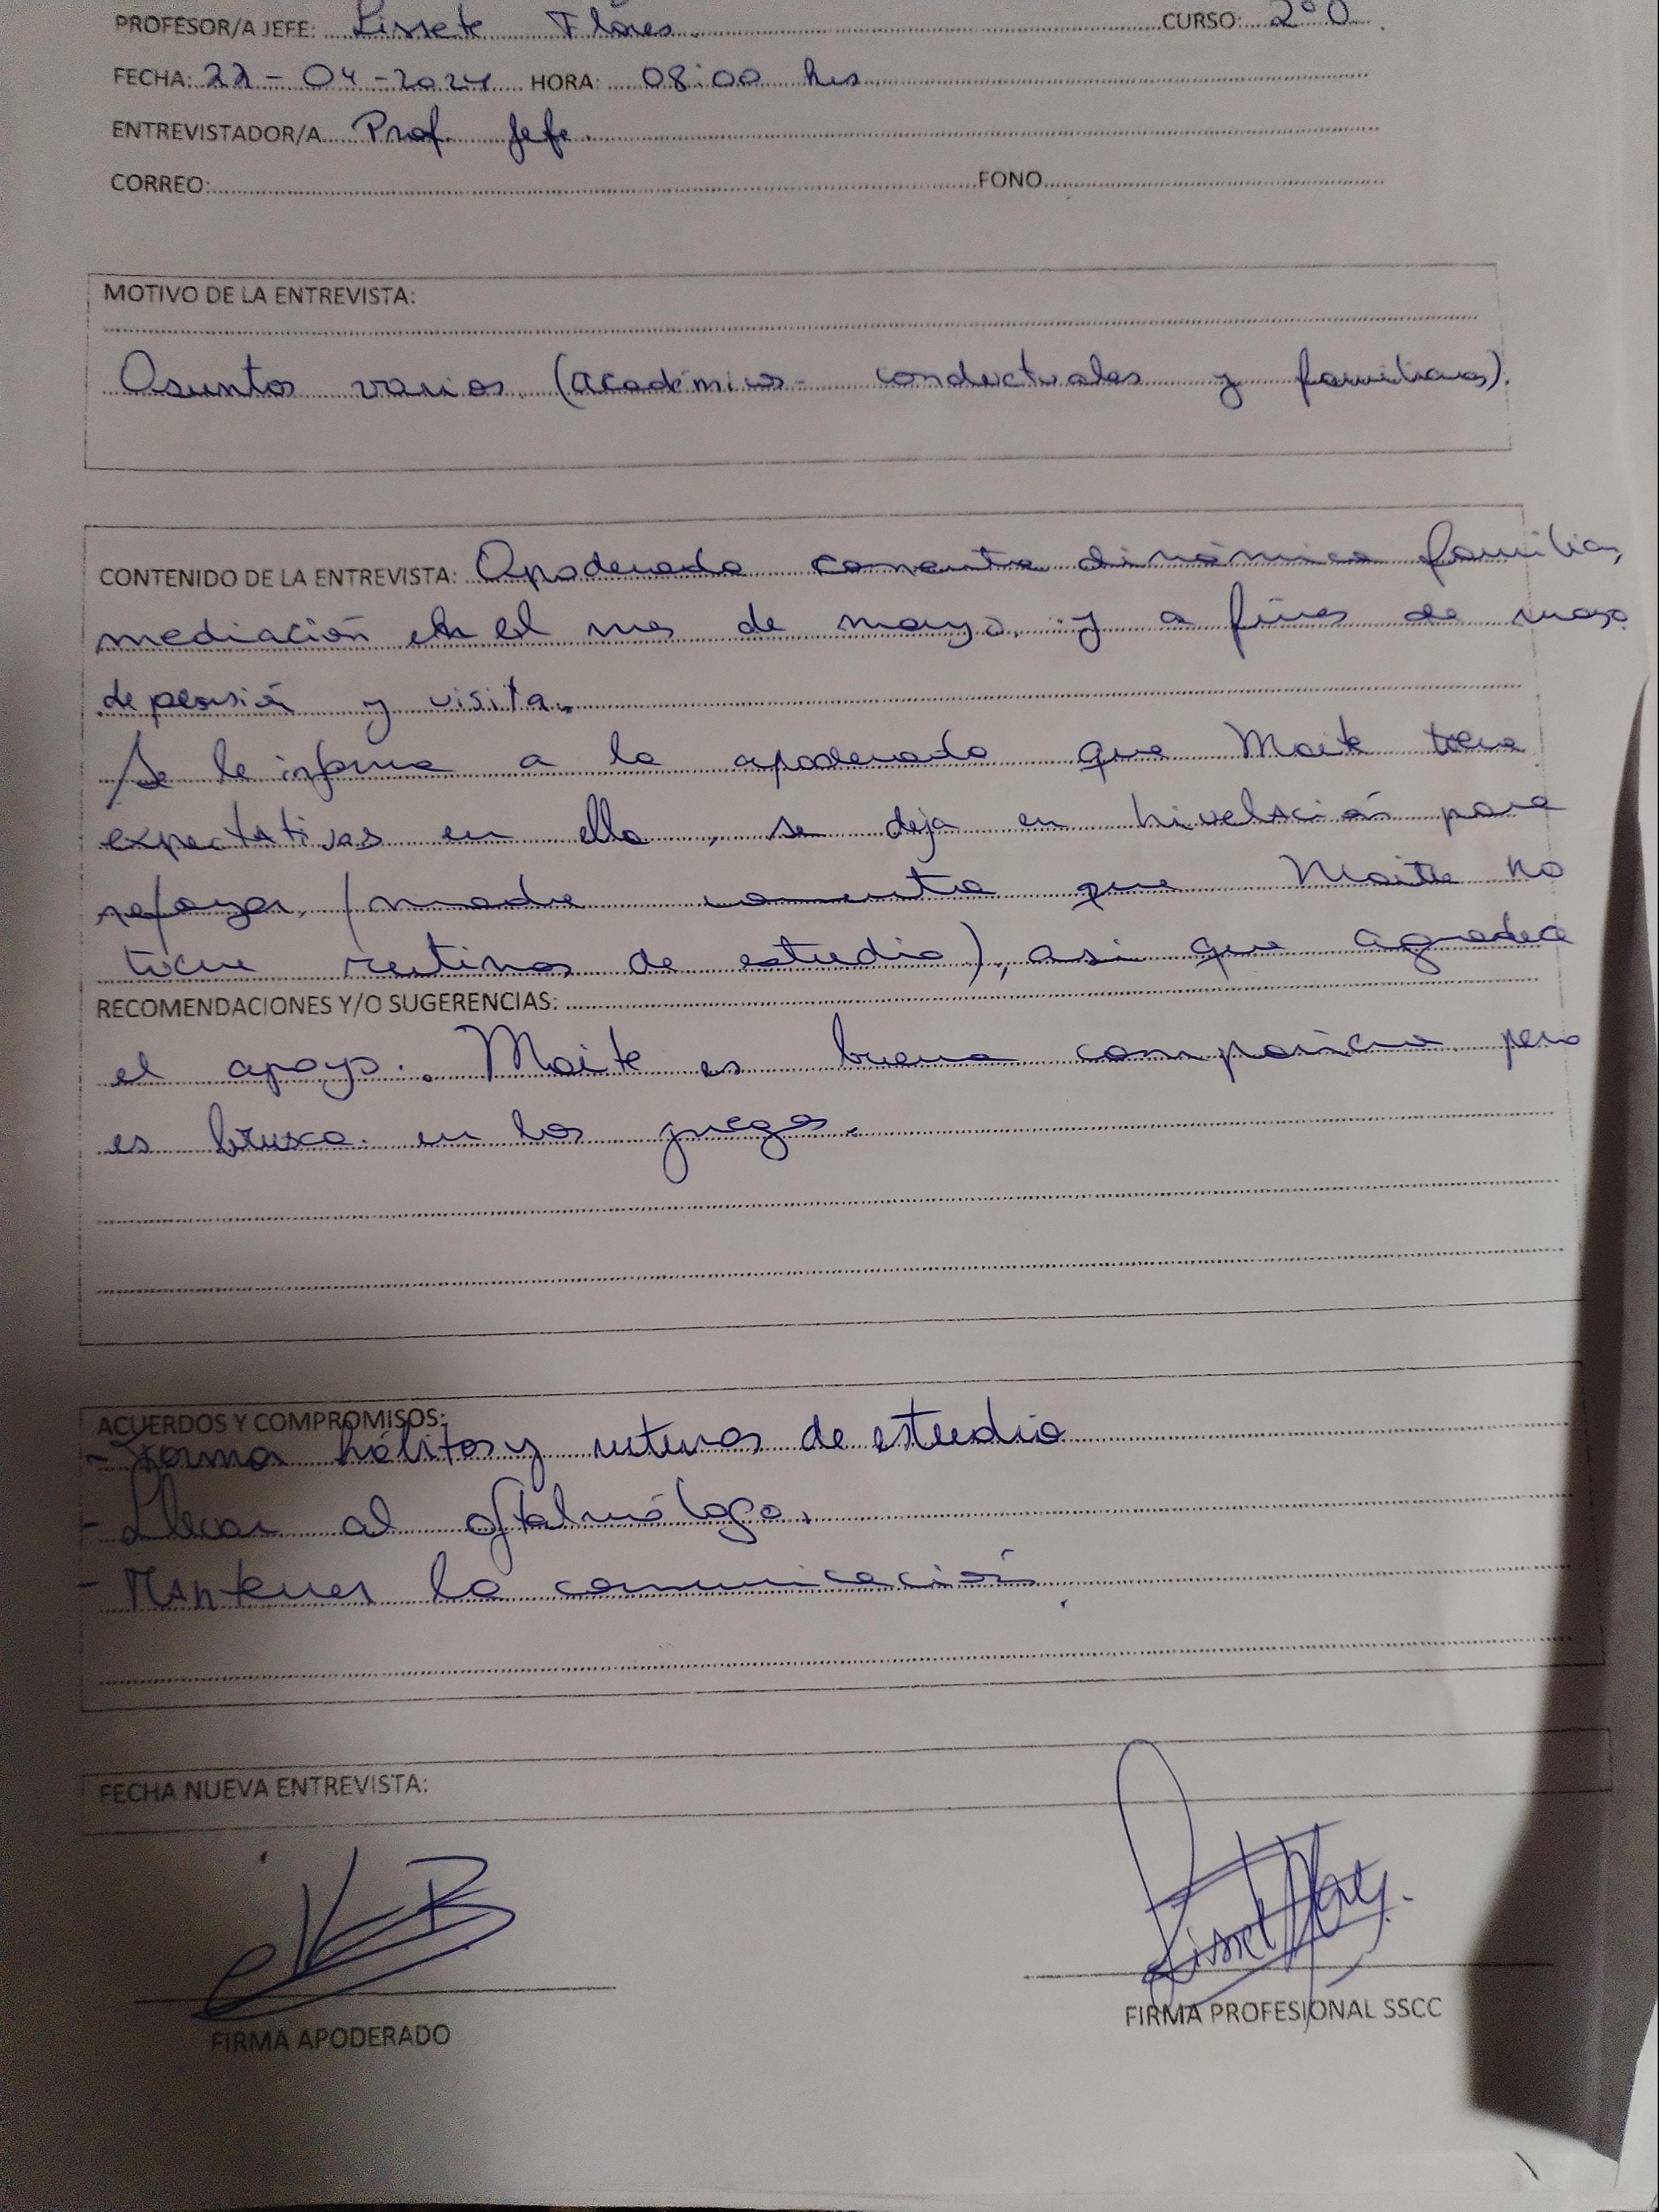 PROFESOR/A JEFE: Lissete Flores. CURSO: 2° D.
FECHA: 22-04-2024 HORA: 08:00 hrs
ENTREVISTADOR/A Prof. Jefe.
CORREO: FONO
MOTIVO DE LA ENTREVISTA:
Asuntos varios (académicos - conductuales y familiares).
CONTENIDO DE LA ENTREVISTA: Apoderada comenta dinámica familiar,
mediación en el mes de mayo y a fines de mayo
de pensión y visita.
Se le informa a la apoderada que Maite tiene
expectativas en ella, se deja en nivelación para
reforzar, (madre comenta que Maite no
tiene rutinas de estudio), asi que agradece
RECOMENDACIONES Y/O SUGERENCIAS:
el apoyo. Maite es buena compañera pero
es brusca en los juegos.
ACUERDOS Y COMPROMISOS:
- Formar hábitos y rutinas de estudio
- Llevar al oftalmólogo.
- Mantener la comunicación.
FECHA NUEVA ENTREVISTA:
FIRMA APODERADO
FIRMA PROFESIONAL SSCC